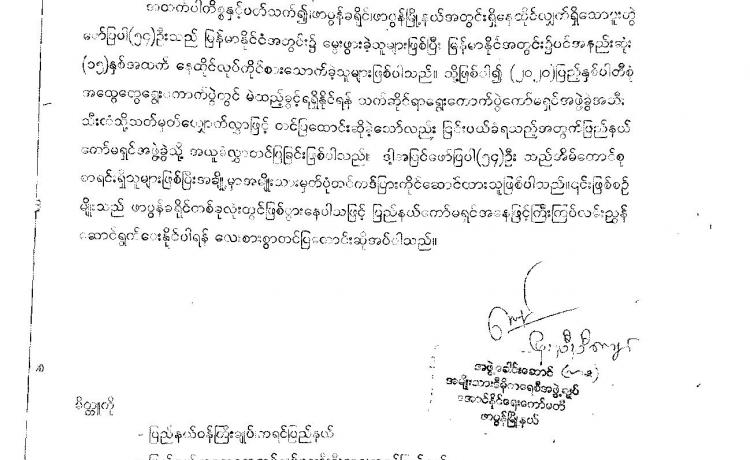 အထက်ပါကိစ္စနှင့်ပတ်သက်၍ဖာပွန်ခရိုင်၊ဖာပွန်မြို့နယ်အတွင်းရှိနေထိုင်လျှက်ရှိသော
ဖော်ပြပါ(၅၄)ဦးသည် မြန်မာနိုင်ငံအတွင်း၌ မွေးဖွားခဲ့သူများဖြစ်ပြီး မြန်မာနိုင်အတွင်း၌ပင်အနည်းဆုံး
(၁၅)နှစ်အထက် နေထိုင်လုပ်ကိုင်စားသောက်ခဲ့သူများဖြစ်ပါသည်။ သို့ဖြစ်ပါ၍ (၂၀၂၀)ပြည့်နှစ်ပါတီစုံ
အထွေထွေရွေးကောက်ပွဲတွင် မဲထည့်ခွင့်ရရှိနိုင်ရန် သက်ဆိုင်ရာရွေးကောက်ပွဲကော်မရှင်အဖွဲ့ခွဲအသီး
သီးထံသို့သတ်မှတ်လျှောက်လွှာဖြင့် တင်ပြတောင်းဆိုခဲ့သော်လည်း ငြင်းပယ်ခံရသည့်အတွက်ပြည်နယ်
ကော်မရှင်အဖွဲ့ခွဲသို့ အယူခံလွှာတင်ပြခြင်းဖြစ်ပါသည်။ ဒါ့အပြင်ဖော်ပြပါ(၅၄)ဦး သည်အိမ်ထောင်စု
စာရင်းရှိသူများဖြစ်ပြီးအချို့မှာအမျိုးသားမှတ်ပုံတင်ကဒ်ပြားကိုင်ဆောင်ထားသူဖြစ်ပါသည်။၎င်းဖြစ်စဉ်
မျိုးသည် ဖာပွန်ခရိုင်တစ်ခုလုံးတွင်ဖြစ်ပွားနေပါသဖြင့် ပြည်နယ်ကော်မရှင်အနေဖြင့်ကြီးကြပ်လမ်းညွှန်
ဆောင်ရွက်ပေးနိုင်ပါရန် လေးစားစွာတင်ပြတောင်းဆိုအပ်ပါသည်။
အဖွဲ့ခေါင်းဆောင်
အမျိုးသားဒီမိုကရေစီအဖွဲ့ချုပ်
အောင်နိုင်ရေးကော်မတီ
ဖာပွန်မြို့နယ်
မိတ္တူကို
- ပြည်နယ်ဝန်ကြီးချုပ်၊ကရင်ပြည်နယ်